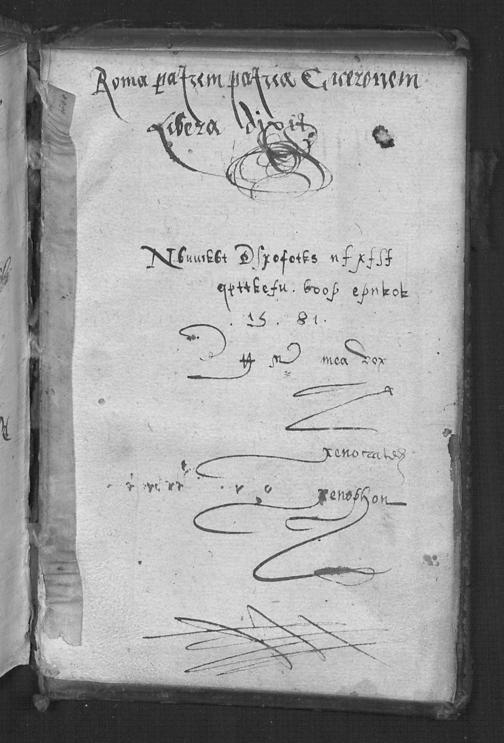 Roma patrem patriæ Ciceronem
Libera dixit
Nbuuikbt nf xfsf
qpttkefu. boop epnkok
. 15 . 81.
mea vox
xenocrates
xenophon